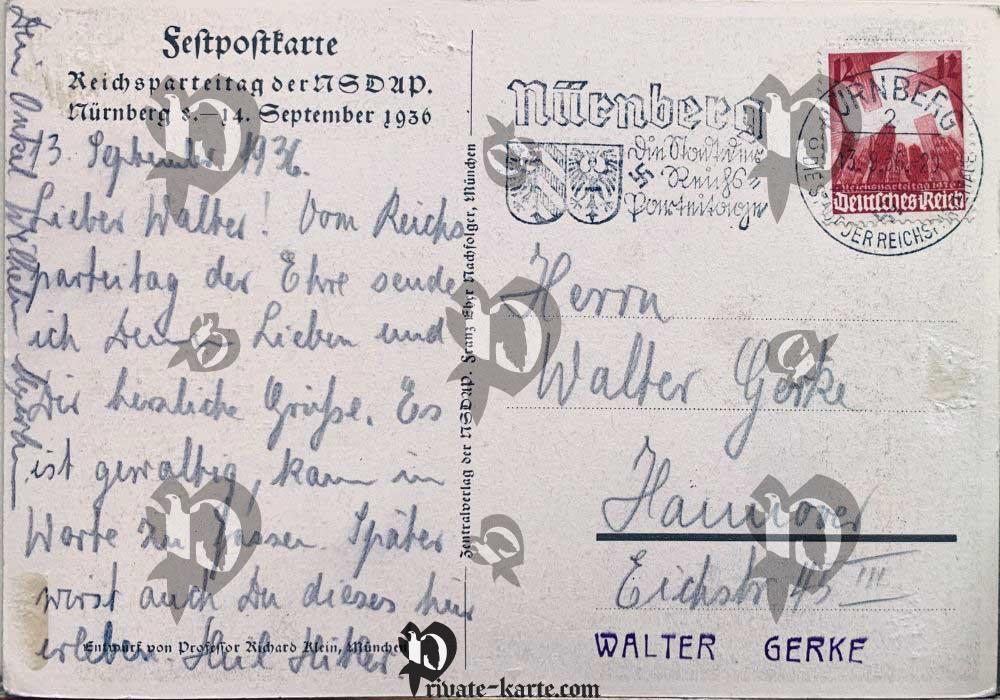 Festpostkarte
Reichsparteitag der NSDAP.
Nürnberg 8.–14. September 1936
13. September 1936.
Lieber Walter! Vom Reichs
parteitag der Ehre sende
ich Deinen Lieben und
Dir herzliche Grüße. Es
ist gewaltig, kaum in
Worte zu fassen. Später
wirst auch Du dieses hier
erleben. Heil Hitler
Dein Onkel Wilhelm
Entwurf von Professor Richard Klein, München
Zentralverlag der NSDAP. Franz Eher Nachfolger, München
Nürnberg
Die Stadt der
Reichs-
Parteitage
12 12
Reichsparteitag 1936
Deutsches Reich
NÜRNBERG
2
Herrn
Walter Gerke
Hannover
Eichstr. 45 III
WALTER GERKE
Private-karte.com